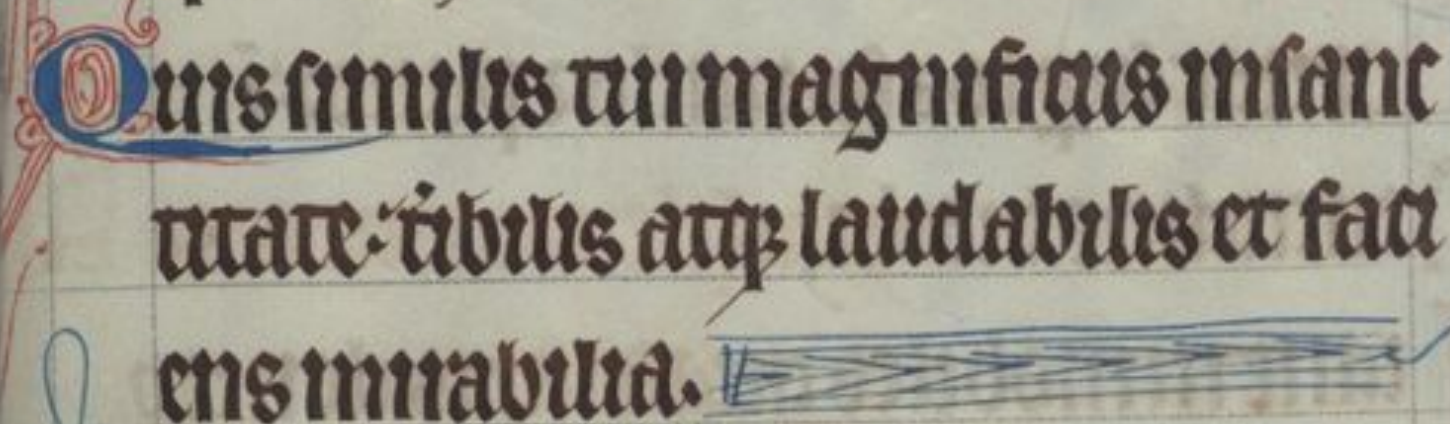 Quis similis tui magnificus in sanc
titate: t̾ibilis atqꝫ laudabilis et faci
ens mirabilia.